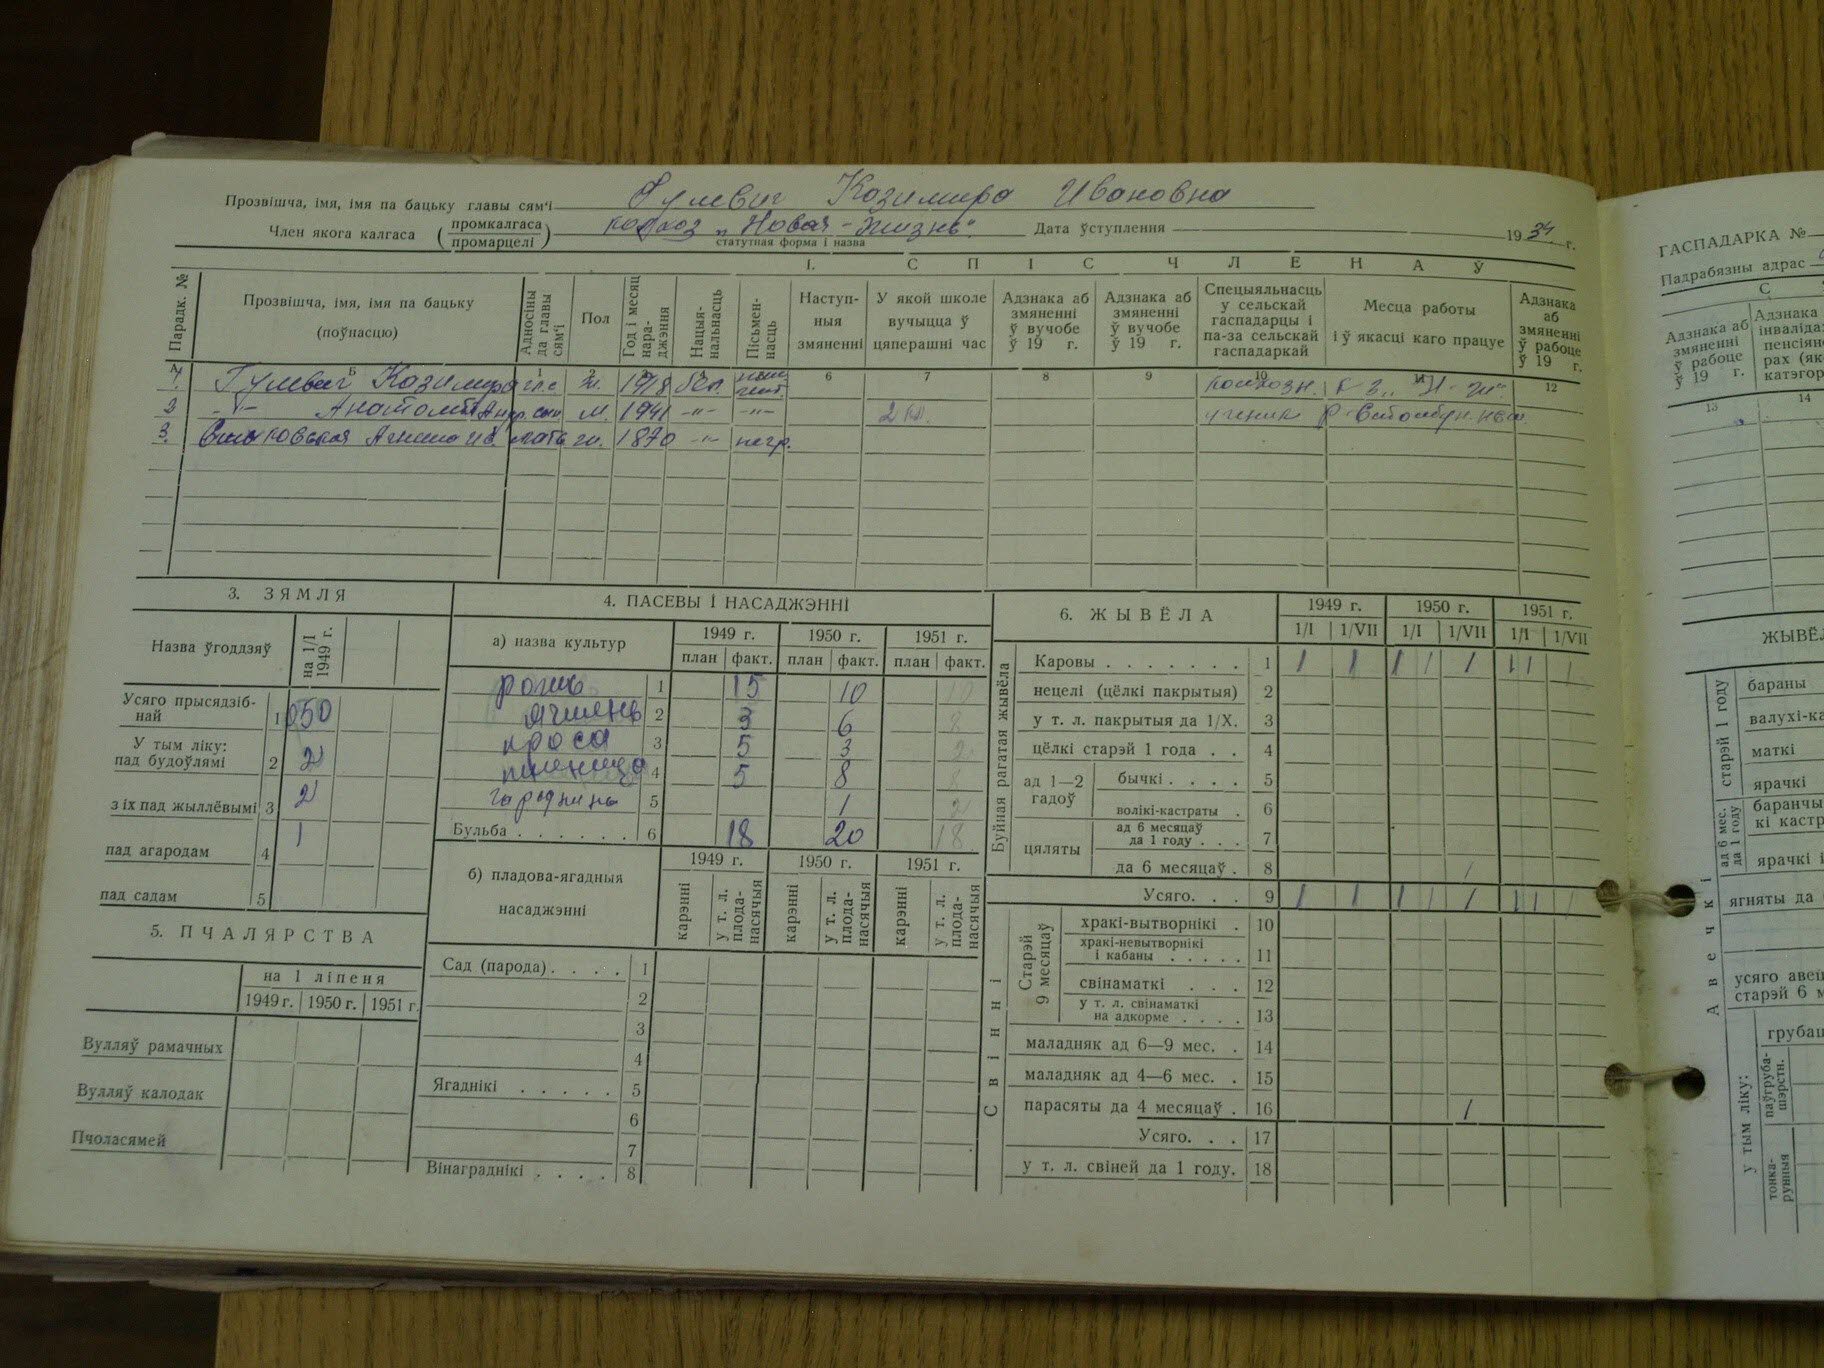 Прозвішча, імя, імя па бацьку главы сям'і Гулевич Казимира Ивановна
Член якога калгаса (промкалгаса промарцелі) колхоз „Новая-Жизнь“ Дата ўступлення 1934 г.
статутная форма і назва
I. СПІС ЧЛЕНАЎ
Парадк. № Прозвішча, імя, імя па бацьку (поўнасцю) Адносіны да главы сям'і Пол Год і месяц нараджэння Нацыянальнасць Пісьменнасць Наступныя змяненні У якой школе вучыцца ў цяперашні час Адзнака аб змяненні ў вучобе ў 19 г. Адзнака аб змяненні ў вучобе ў 19 г. Спецыяльнасць у сельскай гаспадарцы і па-за сельскай гаспадаркай Месца работы і ў якасці каго працуе Адзнака аб змяненні ў рабоце ў 19 г.
А Б 1 2 6 7 8 9 10 11 12
1. Гулевич Казимира гл.с ж. 1918 бел.
2 -"- Анатолий сын м. 1941 -"- -"- 2 кл. ученик
3. Агната мать ж. 1870 -"- негр.
3. ЗЯМЛЯ
Назва ўгоддзяў на 1/I 1949 г.
Усяго прысядзібнай 1 050
У тым ліку: пад будоўлямі 2 2
з іх пад жыллёвымі 3 2
пад агародам 4 1
пад садам 5
5. ПЧАЛЯРСТВА
на 1 ліпеня
1949 г. 1950 г. 1951 г.
Вулляў рамачных
Вулляў калодак
Пчоласямей
4. ПАСЕВЫ І НАСАДЖЭННІ
а) назва культур 1949 г. 1950 г. 1951 г.
план факт. план факт. план факт.
рожь 1 15 10 10
ячмень 2 3 6 8
проса 3 5 3 2
пшеница 4 5 8 8
гародніна 5 1 2
Бульба 6 18 20 18
б) пладова-ягадныя насаджэнні 1949 г. 1950 г. 1951 г.
карэнні у т. л. плоданасячыя карэнні у т. л. плоданасячыя карэнні у т. л. плоданасячыя
Сад (парода) 1
2
3
4
Ягаднікі 5
6
7
Вінаграднікі 8
6. ЖЫВЁЛА 1949 г. 1950 г. 1951 г.
1/I 1/VII 1/I 1/VII 1/I 1/VII
Буйная рагатая жывёла
Каровы 1 1 1 1 1 1 1 1 1
нецелі (цёлкі пакрытыя) 2
у т. л. пакрытыя да 1/X. 3
цёлкі старэй 1 года 4
ад 1—2 гадоў бычкі 5
волікі-кастраты 6
цяляты ад 6 месяцаў да 1 году 7
да 6 месяцаў 8 1
Усяго 9 1 1 1 1 1 1 1 1
Свінні
Старэй 9 месяцаў хракі-вытворнікі 10
хракі-невытворнікі і кабаны 11
свінаматкі 12
у т. л. свінаматкі на адкорме 13
маладняк ад 6—9 мес. 14
маладняк ад 4—6 мес. 15
парасяты да 4 месяцаў 16 1
Усяго 17
у т. л. свіней да 1 году. 18
ГАСПАДАРКА №
Падрабязны адрас
С
Адзнака аб змяненні ў рабоце ў 19 г.
Адзнака
13 14
ЖЫВЁЛ
Авечкі
старэй 1 году
бараны
валухі-ка
маткі
ярачкі
ад 6 мес. да 1 году
баранчы
кі кастр
ярачкі і
ягняты да
усяго авец
старэй 6 м
у тым ліку:
грубаш
паўгрубашэрстн.
тонкарунныя